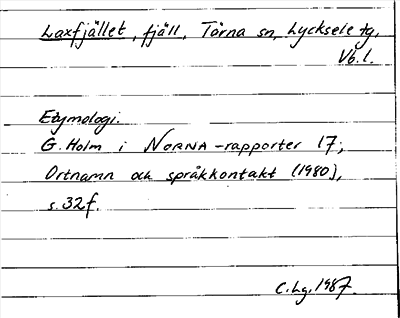 Laxfjället, fjäll, Tärna sn, Lycksele tg,
Vb.l.
Etymologi.
G. Holm i NORNA-rapporter 17;
Ortnamn och språkkontakt (1980),
s. 32f.
C.Lg. 1987.